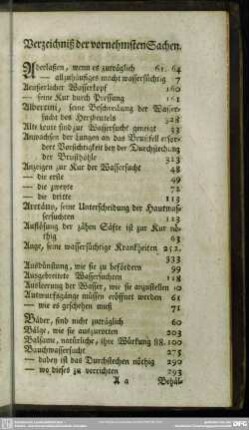 Verzeichniß der vornehmsten Sachen.
Aderlaßen, wenn es zuträglich 61. 64
— allzuhäufiges macht wassersüchtig 7
Aeußerlicher Wasserkopf 160
— seine Kur durch Pressung 161
Albertini, seine Beschreibung der Wasser-
sucht des Herzbeutels 328
Alte leute sind zur Wassersucht geneigt 33
Anwachsen der Lungen an das Brustfell erfor-
dert Vorsichtigkeit bey der Durchstechung
der Brusthöhle 313
Anzeigen zur Kur der Wassersucht 48
— die erste 49
— die zweyte 72
— die dritte 112
Aretäus, seine Unterscheidung der Hautwas-
sersuchten 113
Auflösung der zähen Säfte ist zur Kur nö-
thig 63
Auge, seine wassersüchtige Krankheiten 252.
Ausdünstung, wie sie zu befördern 99
Ausgebreitete Wassersuchten 118
Ausleerung der Wasser, wie sie anzustellen 10
Auswurfsgänge müssen eröffnet werden 61
— wie es geschehen muß 71
Bäder, sind nicht zuträglich 60
Bälge, wie sie auszurotten 203
Balsame, natürliche, ihre Würkung 88. 100
Bauchwassersucht 275
— dabey ist das Durchstechen nöthig 292
— wo dieses zu verrichten 293
A a Behäl-